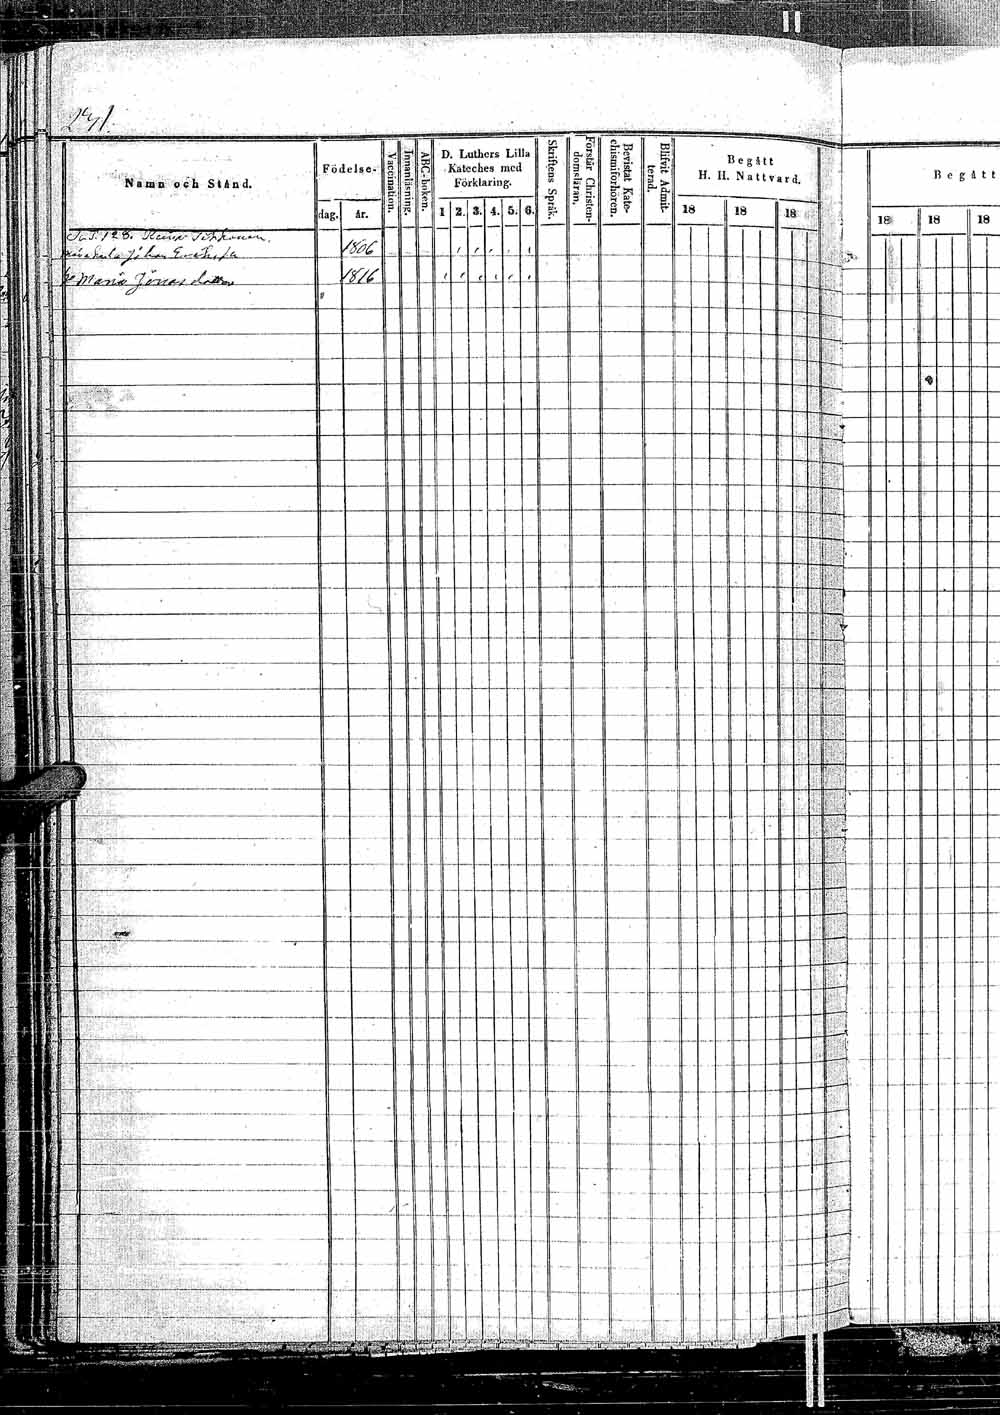 291.
Namn och Stånd.
Födelse-
dag.
år.
Vaccination.
Innanläsning.
ABC-boken.
D. Luthers Lilla
Kateches med
Förklaring.
1 2. 3. 4. 5. 6.
Skriftens Språk.
Förstår Christen-
domsläran.
Bevistat Kate-
chismiförhören.
Blifvit Admit-
terad.
Begått
H. H. Nattvard.
18 18 18
Begått
18 18 18
128.
Johan 1806
Maria Jonasdotter 1816